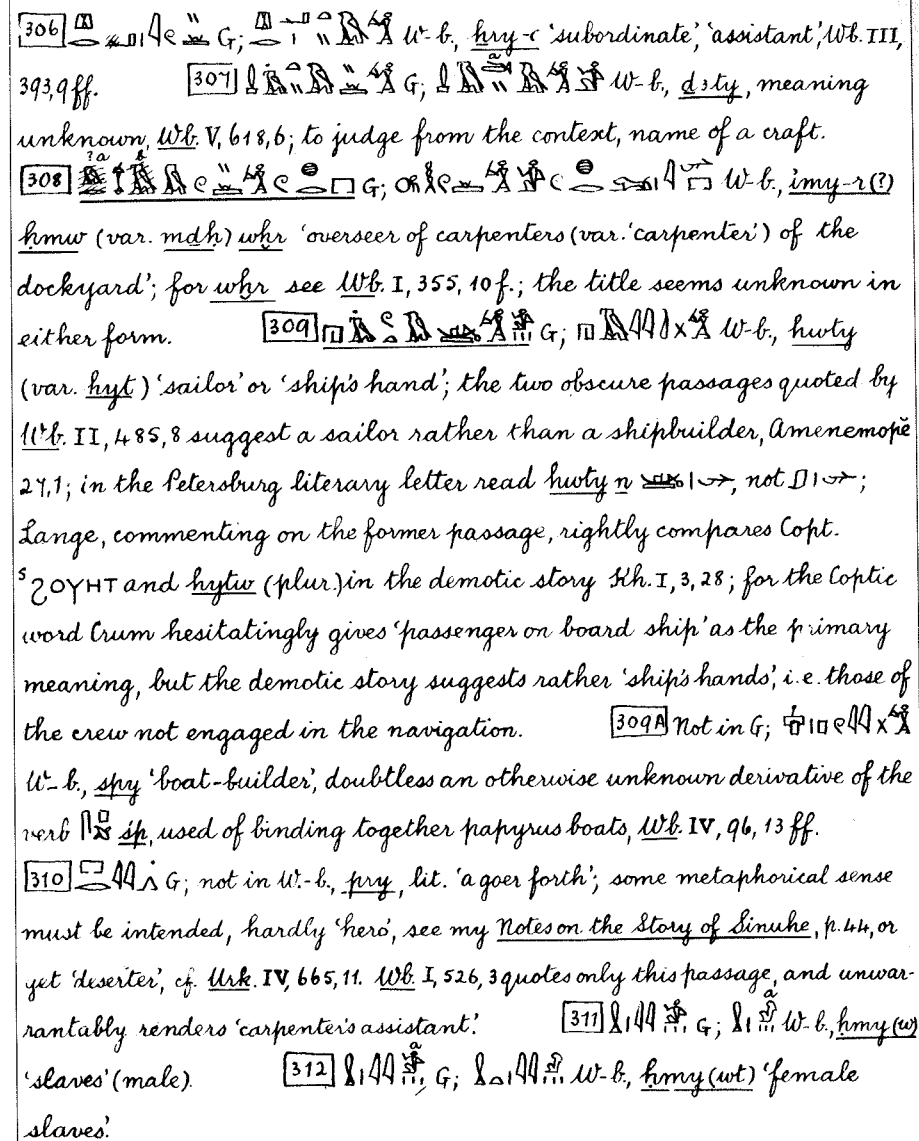 306 G; W-b., ẖry-ꜥ 'subordinate', 'assistant', Wb. III,
393,9ff. 307 G; W-b., dꜣty, meaning
unknown, Wb. V, 618,6; to judge from the context, name of a craft.
308 ?a b G; W-b., imy-r(?)
ḥmw (var. mdḥ) wḫr 'overseer of carpenters (var. 'carpenter') of the
dockyard'; for wḫr see Wb. I, 355, 10f.; the title seems unknown in
either form. 309 G; W-b., hwty
(var. hyt) 'sailor' or 'ship's hand'; the two obscure passages quoted by
Wb. II, 485,8 suggest a sailor rather than a shipbuilder, Amenemopĕ
27,1; in the Petersburg literary letter read hwty n , not ;
Lange, commenting on the former passage, rightly compares Copt.
S ϩΟΥΗΤ and hytw (plur.) in the demotic story Kh. I, 3, 28; for the Coptic
word Crum hesitatingly gives 'passenger on board ship' as the primary
meaning, but the demotic story suggests rather 'ship's hands', i.e. those of
the crew not engaged in the navigation. 309A Not in G;
W-b., spy 'boat-builder', doubtless an otherwise unknown derivative of the
verb śp, used of binding together papyrus boats, Wb. IV, 96, 13 ff.
310 G; not in W.-b., pry, lit. 'a goer forth'; some metaphorical sense
must be intended, hardly 'hero', see my Notes on the Story of Sinuhe, p.44, or
yet 'deserter', cf. Urk. IV, 665, 11. Wb. I, 526, 3 quotes only this passage, and unwar-
rantably renders 'carpenter's assistant'. 311 G; a W-b., ḥmy(w)
'slaves' (male). 312 a G; W-b., ḥmy(wt) 'female
slaves'.